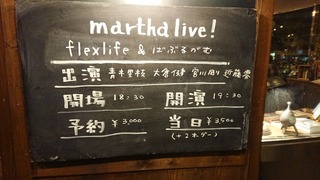 martha live!
flexlife & ばぶるがむ
出演 青木里枝 大倉健 宮川剛
開場 18:30 開演 19:30
予約 ¥3,000 当日 ¥3,500
(+2オーダー)